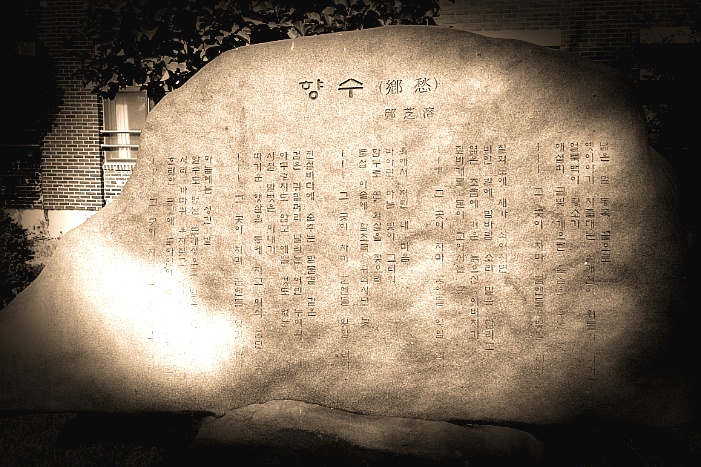 향수 (鄕愁)
鄭芝溶
넓은 벌 동쪽 끝으로
옛이야기 지줄대는 실개천이
황소가
해설피 금빛 게으른 울음을
그 곳이 차마 꿈엔들
질화로에 재가 식어지면
비인 밭에 밤바람 소리 말을 달리고
엷은 졸음에 겨운 늙으신 아버지가
짚베개를 돋아 고이시는 곳
그 곳이 차마 꿈엔들
흙에서 자란 내 마음
파아란 하늘 빛이 그리워
함부로 쏜 화살을 찾으려
풀섶 이슬에 함추름 휘적시던 곳
그 곳이 차마 꿈엔들 잊힐리야
전설바다에 춤추는 밤물결 같은
검은 귀밑머리 날리는 어린 누이와
아무렇지도 않고 예쁠 것도 없는
사철 발벗은 아내가
따가운 햇살을 등에 지고 이삭 줍던 곳
그 곳이 차마 꿈엔들 잊힐리야
하늘에는 성근 별
알 수도 없는 모래성으로
서리 까마귀 우지짖고
흐릿한 불빛에 돌아앉아
그 곳이